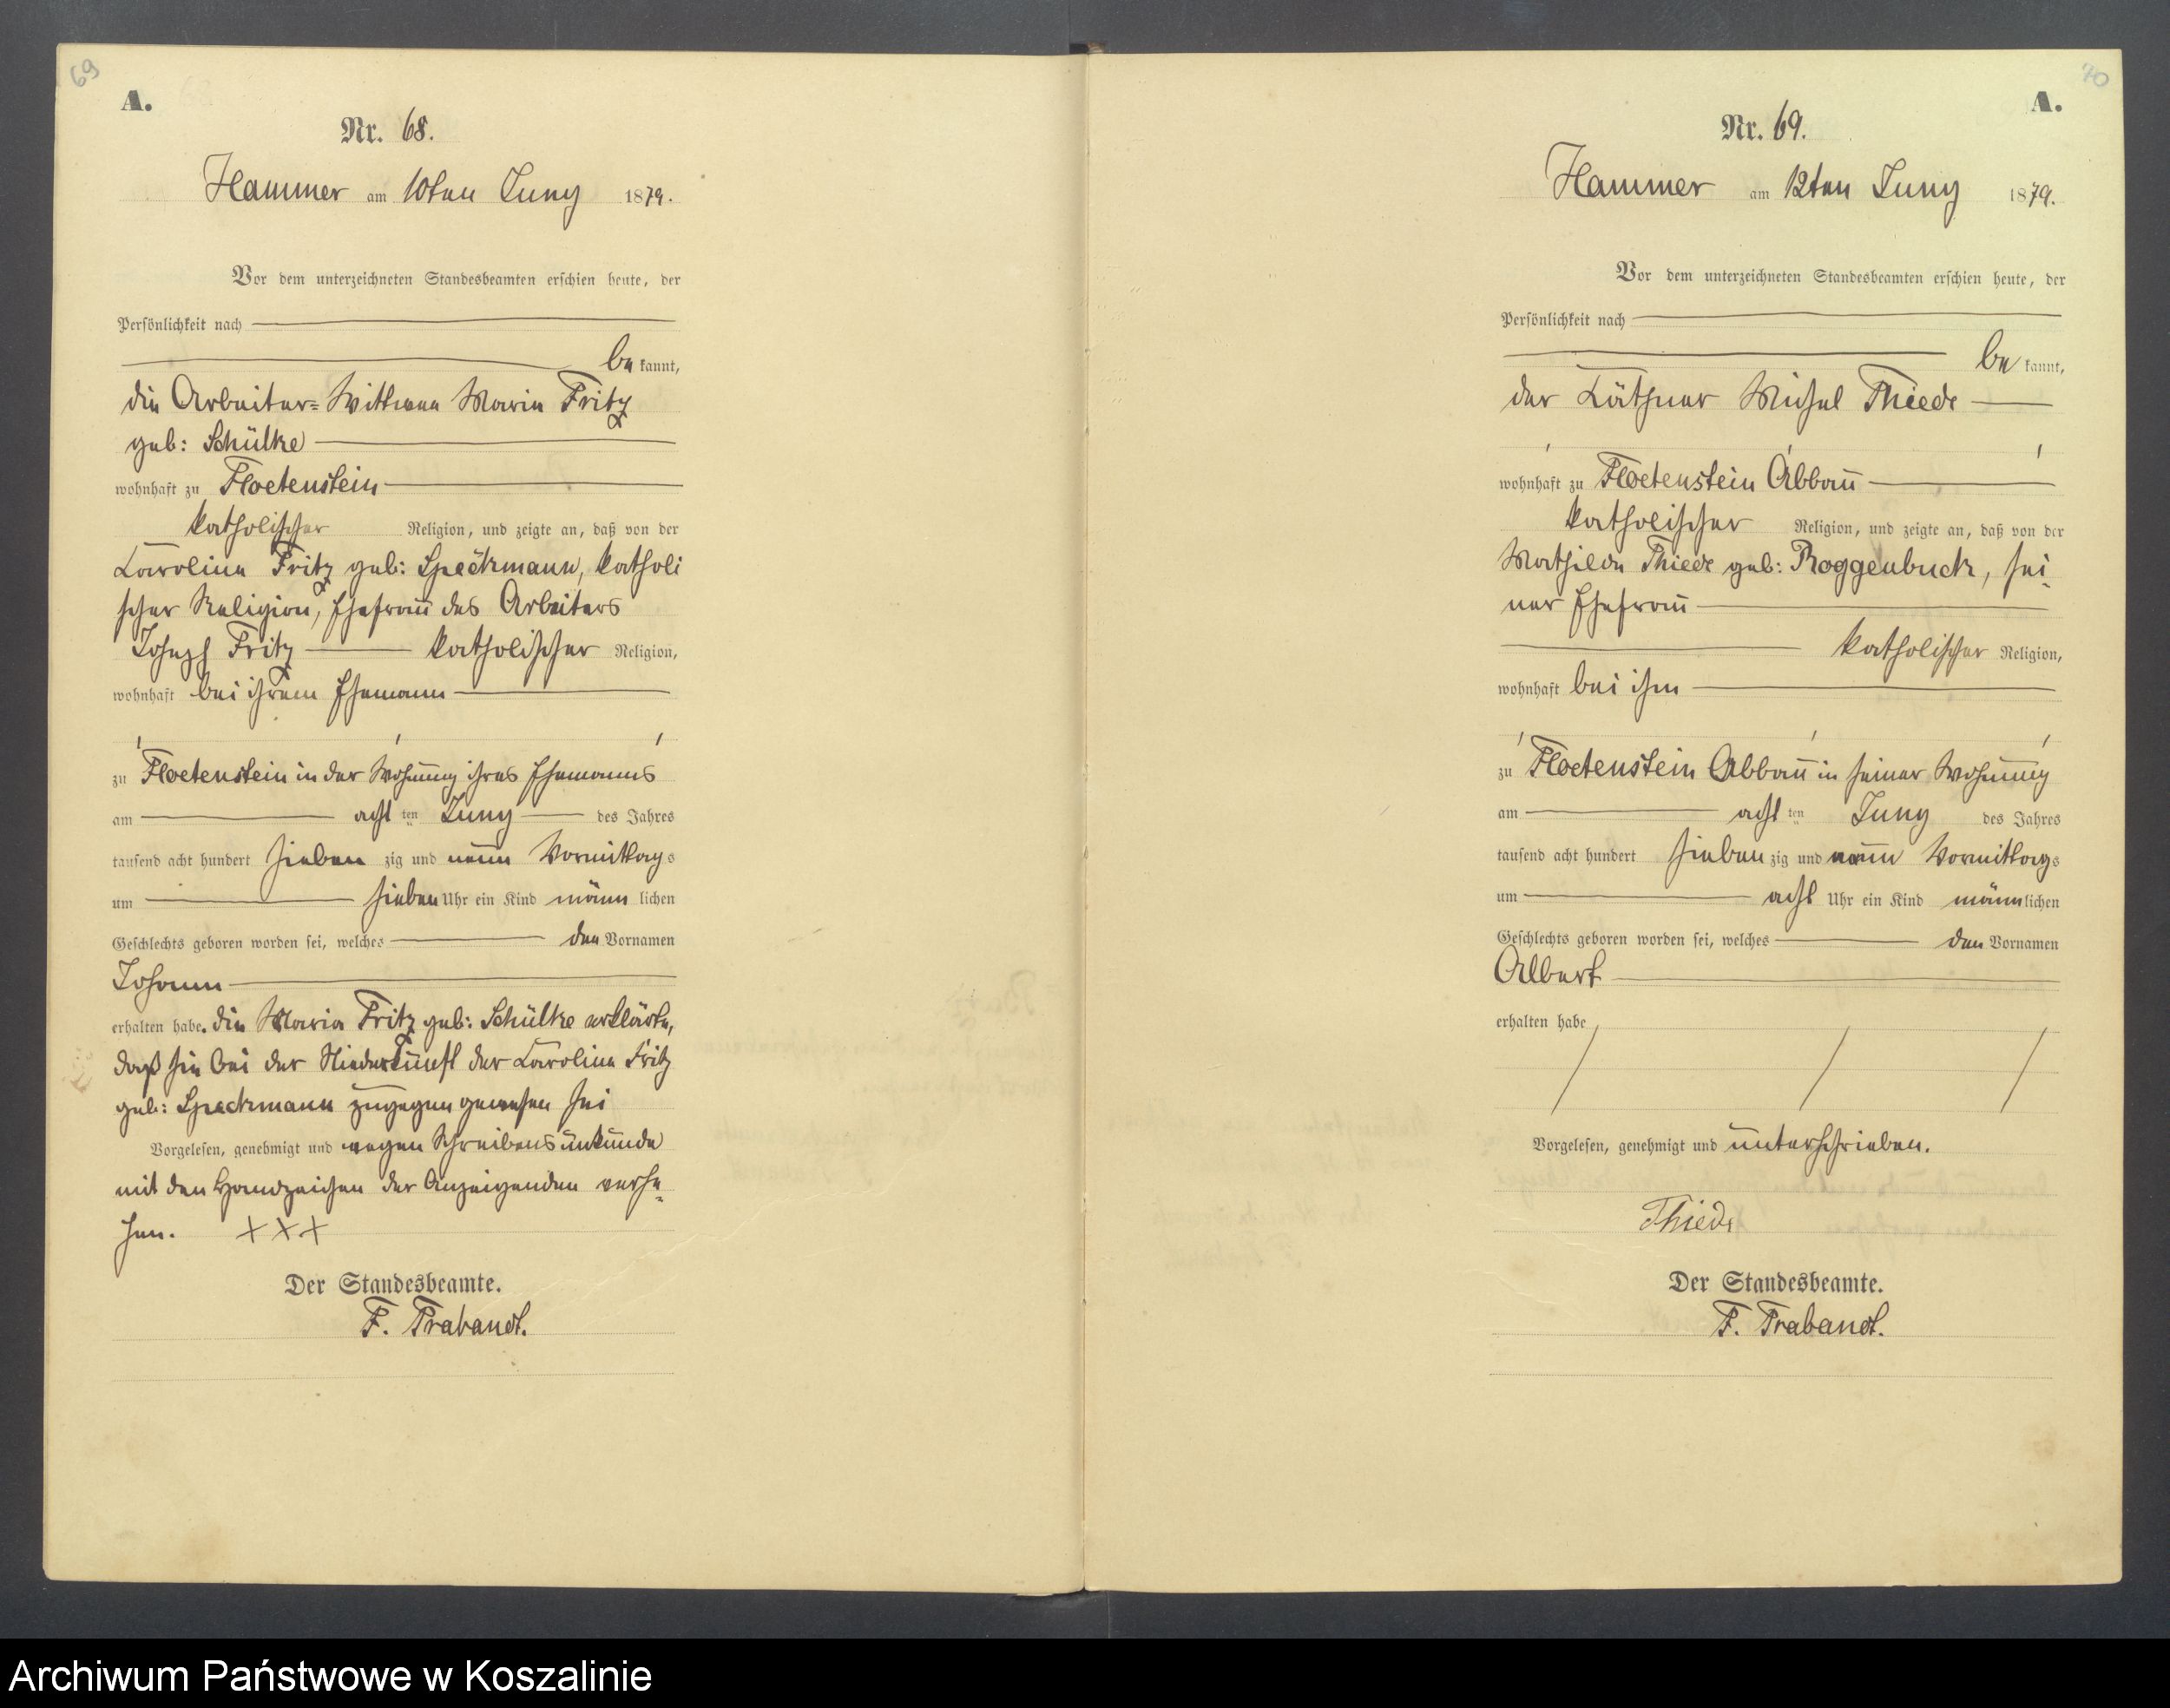 69
A.
Nr. 68.
Hammer am 10ten Juny 1879.
Vor dem unterzeichneten Standesbeamten erschien heute, der
Persönlichkeit nach
be kannt,
die Arbeiter-Wittwe Maria Fritz
geb: Schülke
wohnhaft zu Floetenstein
katholischer Religion, und zeigte an, daß von der
Caroline Fritz geb: Speckmann, katholi
scher Religion, Ehefrau des Arbeiters
Joseph Fritz katholischer Religion,
wohnhaft bei ihrem Ehemann
zu Floetenstein in der Wohnung ihres Ehemanns
am acht ten Juny des Jahres
tausend acht hundert sieben zig und neun Vormittags
um sieben Uhr ein Kind männ lichen
Geschlechts geboren worden sei, welches den Vornamen
Johann
erhalten habe. die Maria Fritz geb: Schülke erklärte,
daß sie bei der Niederkunft der Caroline Fritz
geb: Speckmann zugegen gewesen sei
Vorgelesen, genehmigt und wegen Schreibensunkunde
mit den Handzeichen der Anzeigenden verse-
hen. XXX
Der Standesbeamte.
F. Trabandt.
70
A.
Nr. 69.
Hammer am 12ten Juny 1879.
Vor dem unterzeichneten Standesbeamten erschien heute, der
Persönlichkeit nach
be kannt,
der Käthner Michel Thiede
wohnhaft zu Floetenstein Abbau
katholischer Religion, und zeigte an, daß von der
Mathilde Thiede geb: Roggenbuck, sei-
ner Ehefrau
katholischer Religion,
wohnhaft bei ihm
zu Floetenstein Abbau in seiner Wohnung
am acht ten Juny des Jahres
tausend acht hundert sieben zig und neun Vormittags
um acht Uhr ein Kind männ lichen
Geschlechts geboren worden sei, welches den Vornamen
Albert
erhalten habe
Vorgelesen, genehmigt und unterschrieben.
Thiede
Der Standesbeamte.
F. Trabandt.
Archiwum Państwowe w Koszalinie